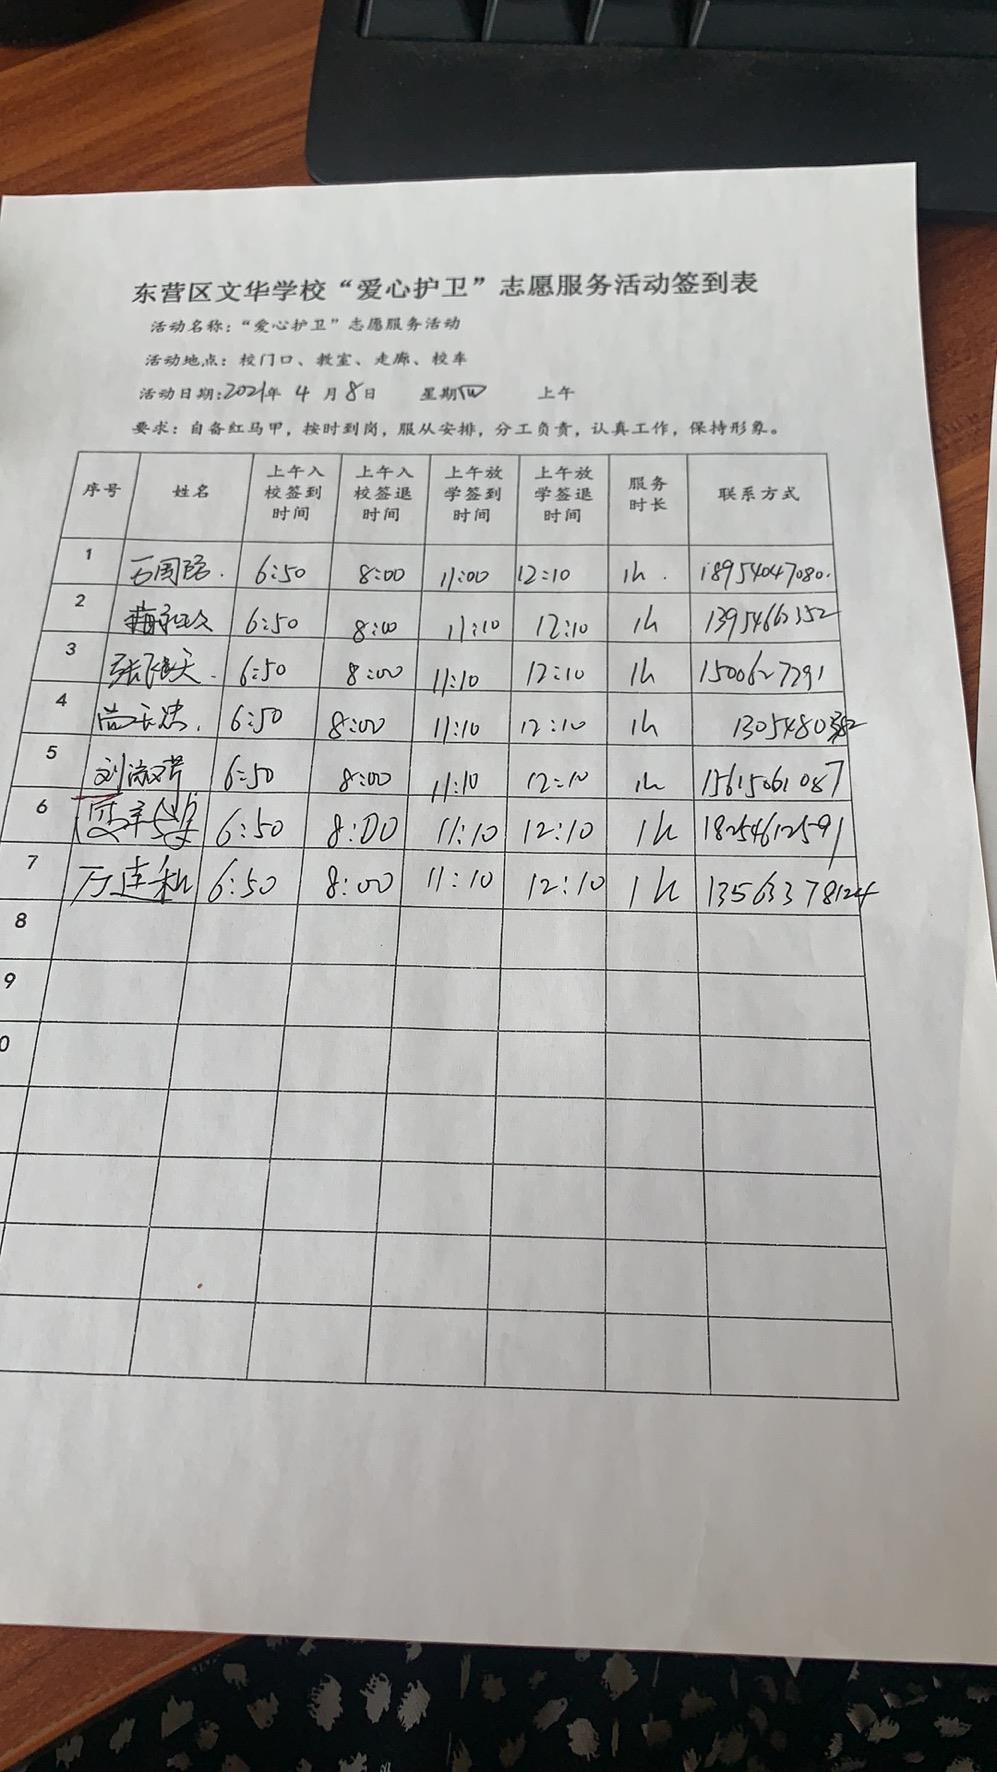 东营区文华学校“爱心护卫”志愿服务活动签到表
活动名称：“爱心护卫”志愿服务活动
活动地点：校门口、教室、走廊、校车
活动日期：2021年 4 月 8 日 星期四 上午
要求：自备红马甲，按时到岗，服从安排，分工负责，认真工作，保持形象。
序号 姓名 上午入校签到时间 上午入校签退时间 上午放学签到时间 上午放学签退时间 服务时长 联系方式
1 6:50 8:00 11:00 12:10 1h. 18954047080.
2 6:50 8:00 11:10 12:10 1h
3 6:50 8:00 11:10 12:10 1h 15006627291
4 6:50 8:00 11:10 12:10 1h
5 刘淑芹 6:50 8:00 11:10 12:10 1h 15615061087
6 6:50 8:00 11:10 12:10 1h 18254612591
7 万连私 6:50 8:00 11:10 12:10 1h 13563378124
8
9
0